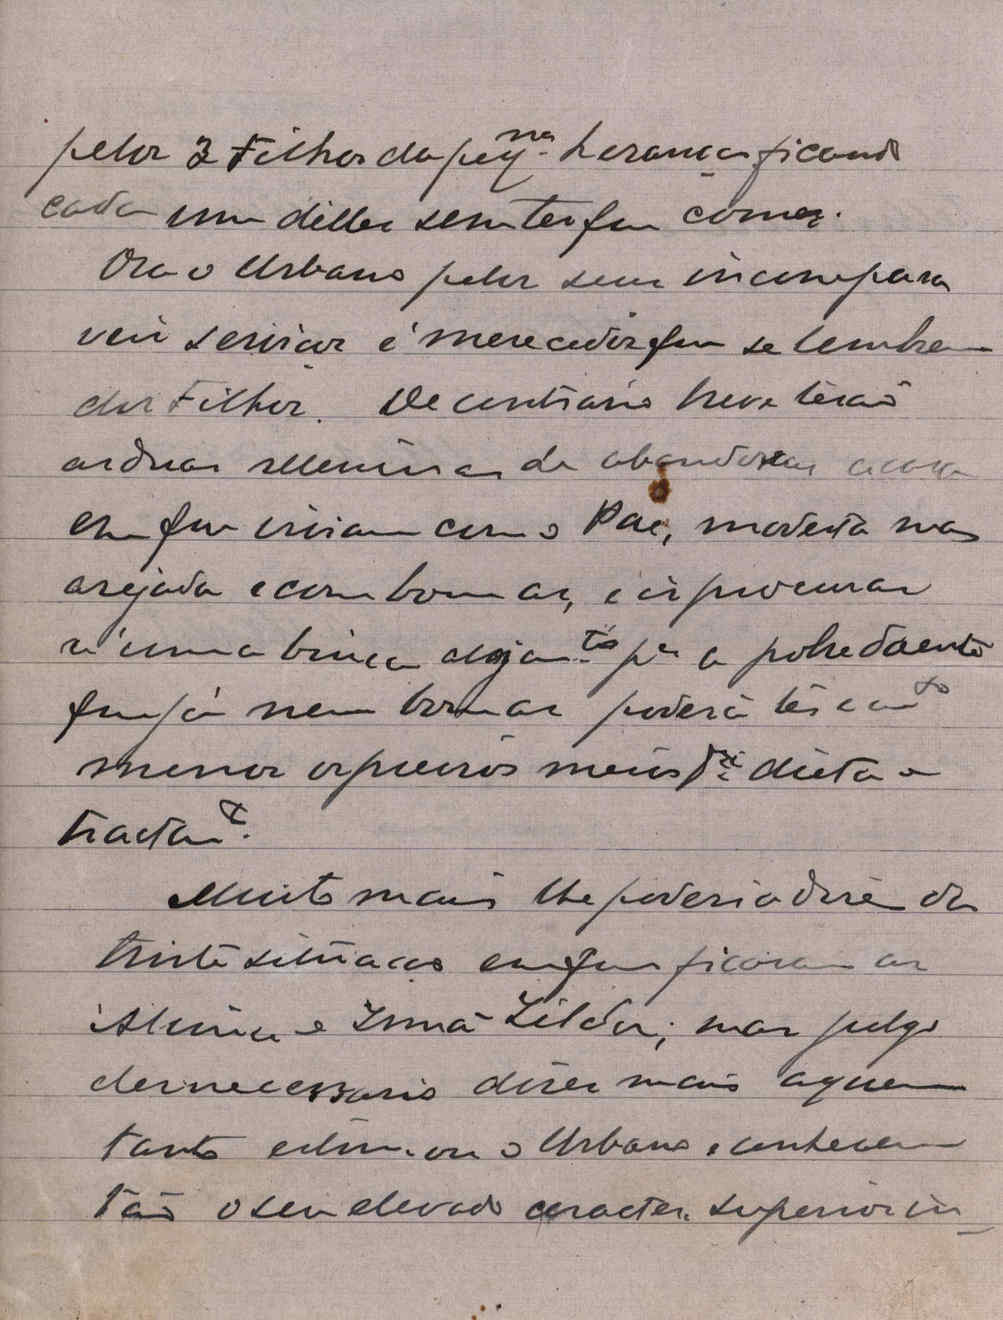 pelos 3 Filhos da peq.na herança ficando
cada um delles sem ter que comer.
Ora o Urbano pelos seus incompara
veis serviços é merecedor que se lembrem
dos Filhos. De contrario breve terão
as duas meninas de abandonar a casa
em que viviam com o Pae, modesta mas
arejada e com bom ar, e ir procurar
n'uma
que já nem bom ar poderá ter e
menos os precisos meios p.a dieta e
tractam.to.
Muito mais lhe poderia dizer da
triste situação em que ficaram as
Alzira e Irmã Zilda; mas julgo
desnecessario dizer mais a quem
tanto estimou o Urbano e conheceu
tão o seu elevado caracter, superior in-